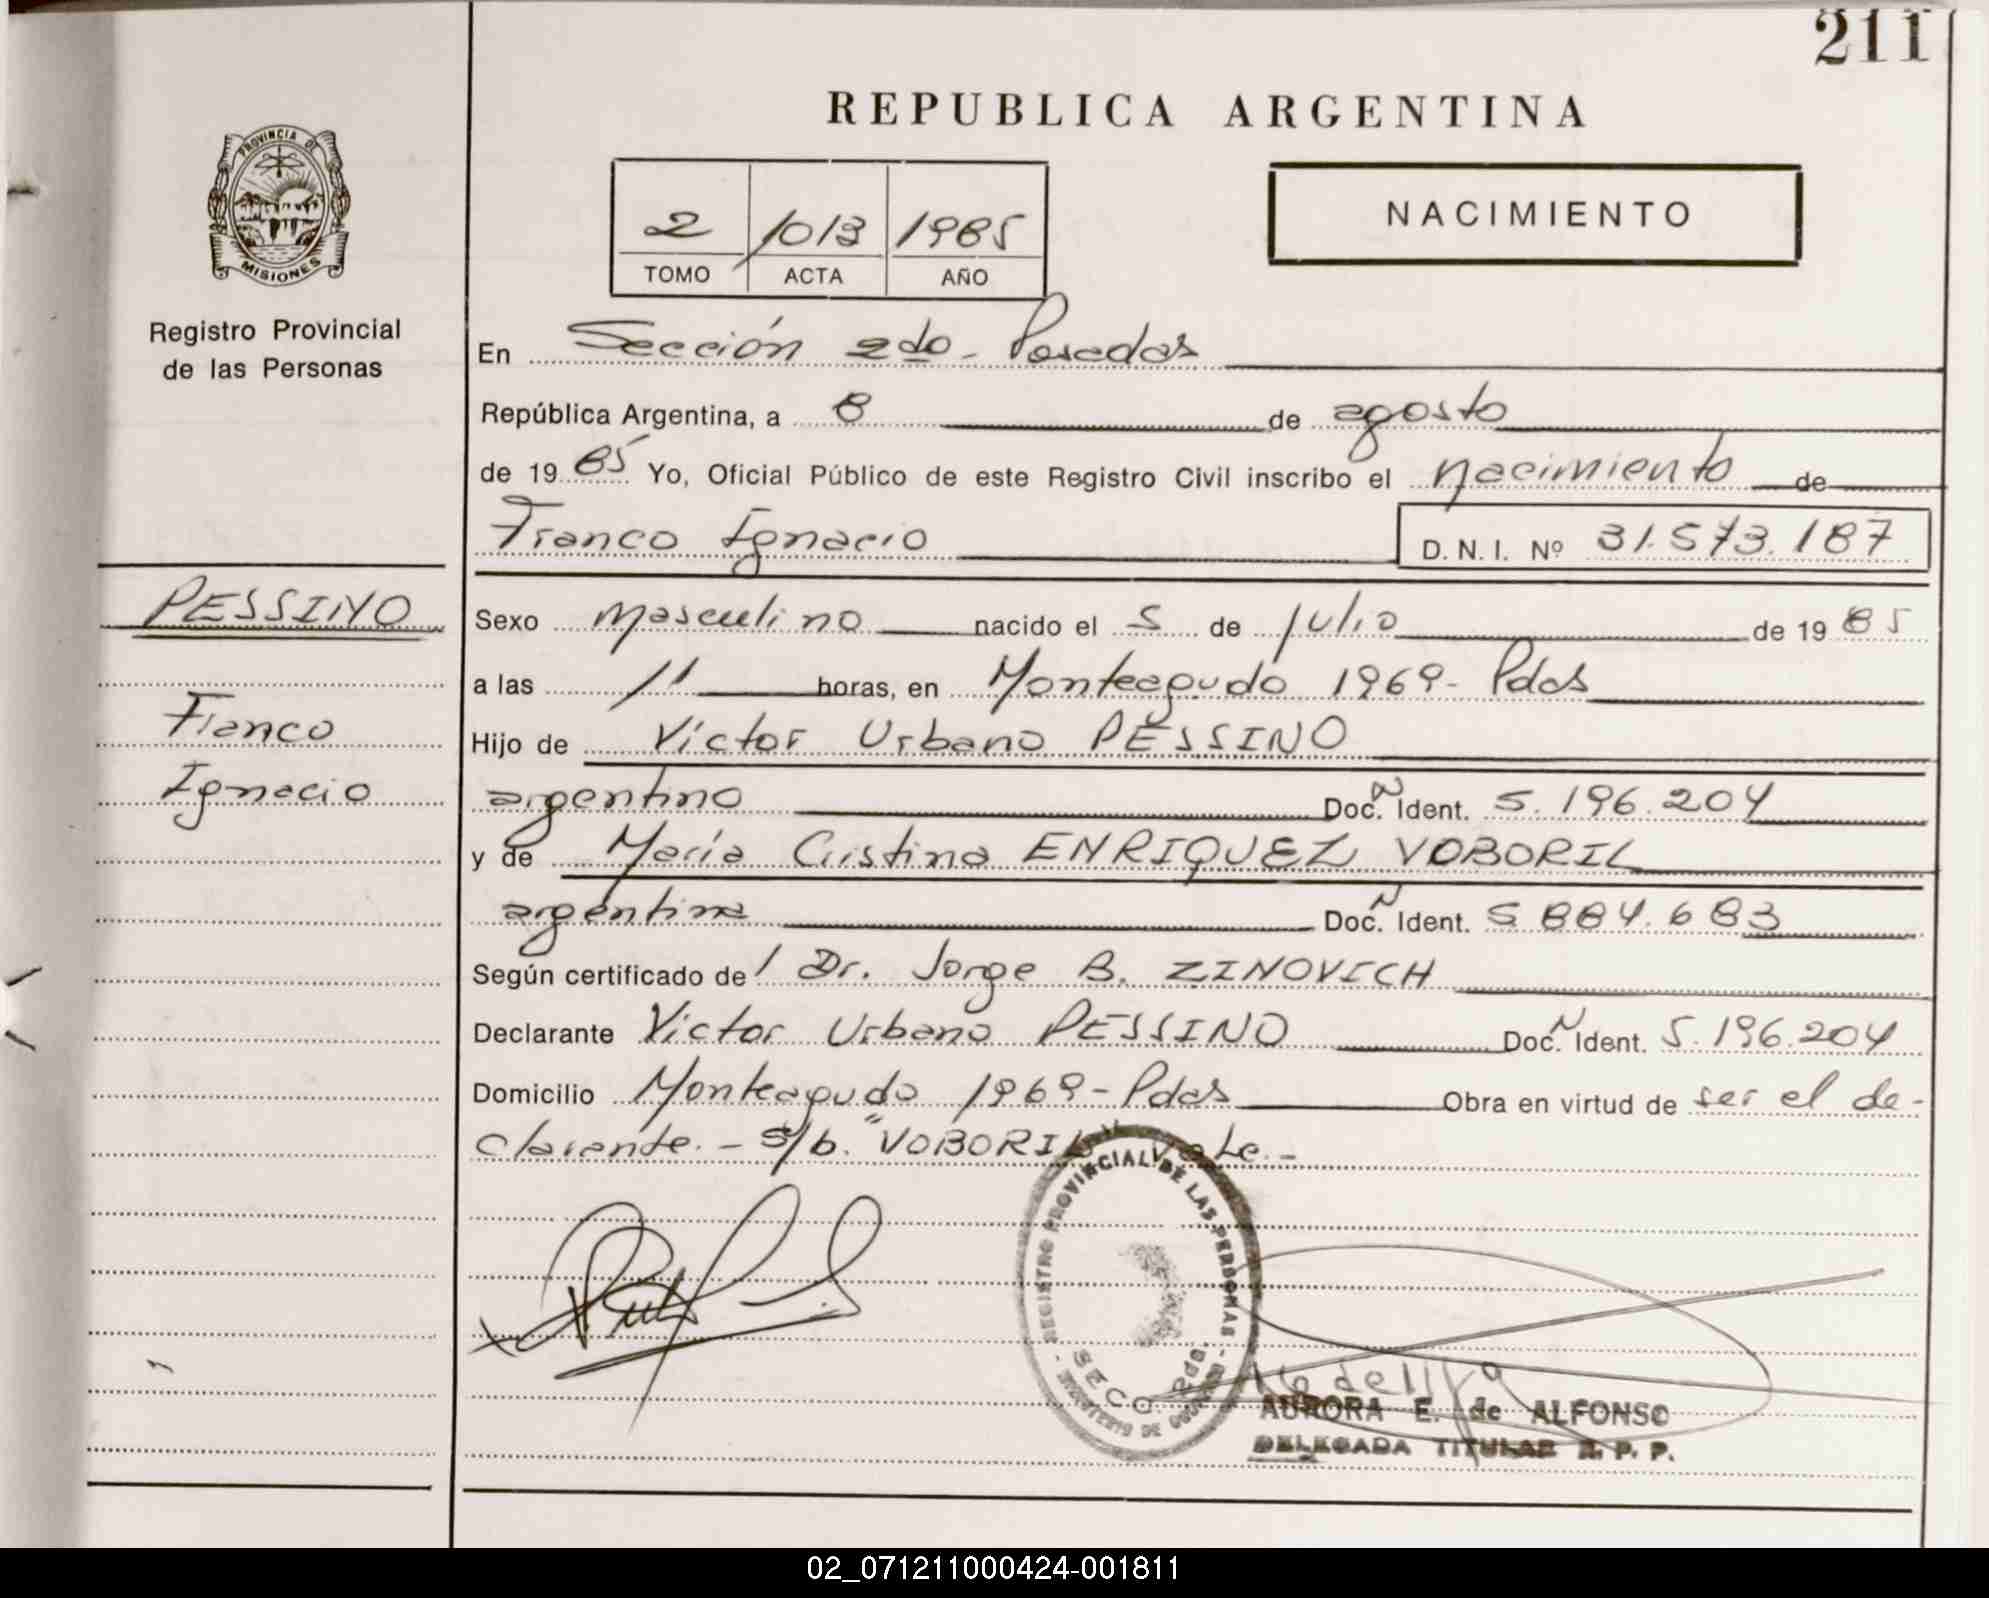 211
REPUBLICA ARGENTINA
PROVINCIA DE
MISIONES
Registro Provincial
de las Personas
2 1013 1985
TOMO ACTA AÑO
NACIMIENTO
En Sección 2do - Posadas
República Argentina, a 8 de agosto
de 1985 Yo, Oficial Público de este Registro Civil inscribo el nacimiento de
Franco Ignacio D.N.I. Nº 31.573.187
PESSINO
Franco
Ignacio
Sexo masculino nacido el 5 de julio de 1985
a las 11 horas, en Monteagudo 1969 - Pdas
Hijo de Víctor Urbano PESSINO
argentino Doc. Ident. 5.196.204
y de María Cristina ENRIQUEZ VOBORIL
argentina Doc. Ident. 5.884.683
Según certificado de Dr. Jorge B. ZINOVICH
Declarante Victor Urbano PESSINO Doc. Ident. 5.196.204
Domicilio Monteagudo 1969 - Pdas Obra en virtud de ser el de-
clarante. - s/b. "VOBORIL" Vale. -
REGISTRO PROVINCIAL DE LAS PERSONAS
MINISTERIO DE GOBIERNO
AURORA E. de ALFONSO
DELEGADA TITULAR R. P. P.
02_071211000424-001811